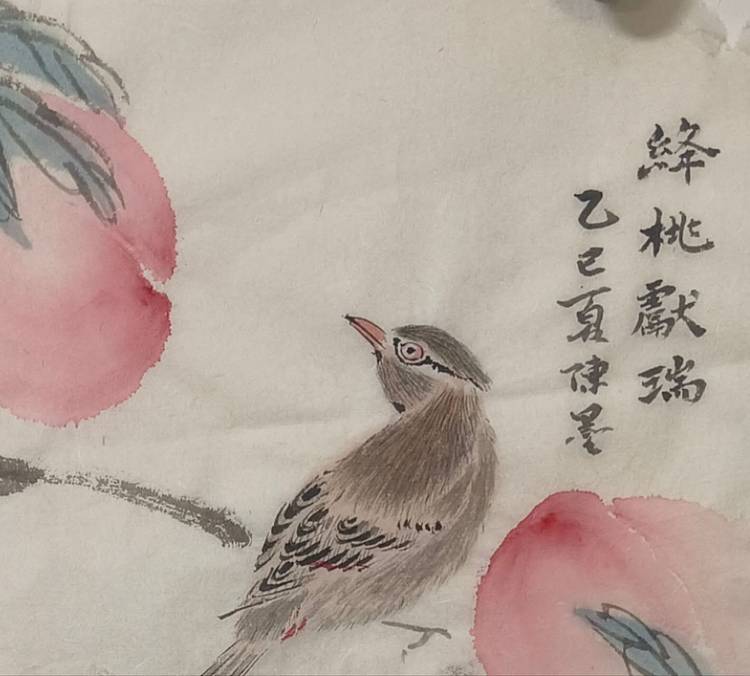 絳桃獻瑞
乙巳夏陳墨